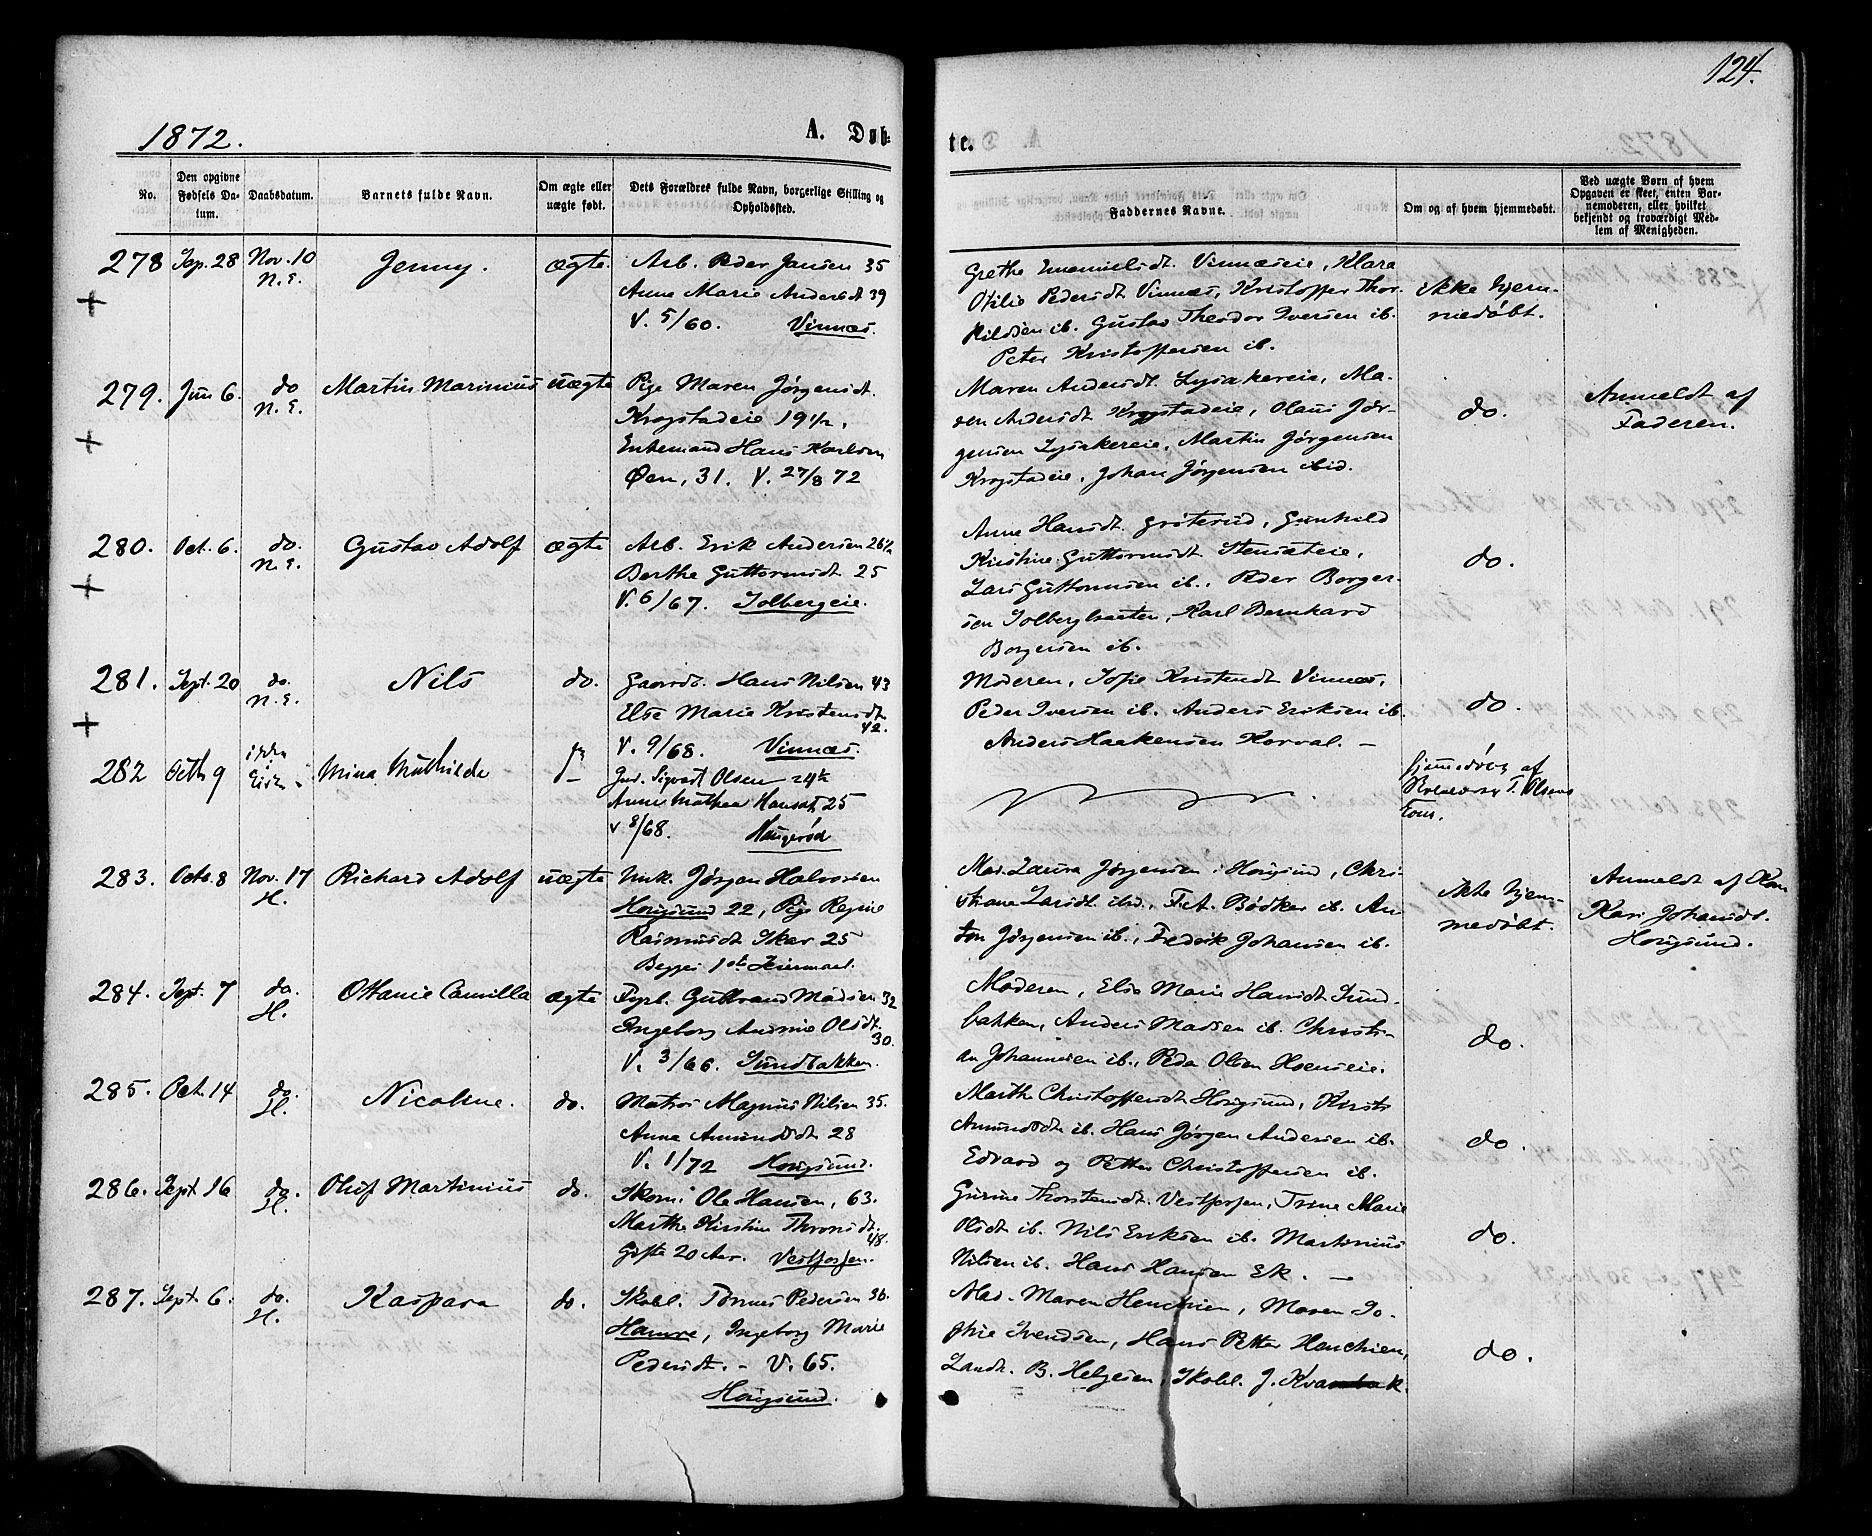 124.
1872.
A. Døb-
te.
No.
Den opgivne Fødsels Da-tum.
Daabsdatum.
Barnets fulde Navn.
Om ægte eller uægte født.
Dets Forældres fulde Navn, borgerlige Stilling og Opholdssted.
Faddernes Navne.
Om og af hvem hjemmedøbt.
Ved uægte Børn af hvem Opgaven er skeet, enten Bar-nemoderen, eller hvilket bekjendt og troværdigt Med-lem af Menigheden.
278 Sep. 28 Nov. 10 N.E. Jenny. ægte.
Arb. Peder Jansen 35
Anne Marie Andersdt 39
V. 5/60. Vinnæs.
Grethe Vinnæseie, Klara
Pedersdt Vinnæs, Kristoffer Thor-
kildsen ib. Gustav Theodor Iversen ib.
Peter Kristoffersen ib.
ikke hjem-
medøbt.
279. Jun 6. do N.E. Martin Marinius uægte
Pige Maren Jørgensdt.
Krogstadeie 19 1/2,
Enkemand Hans Karlsen
Øen, 31. V. 27/8 72
Maren Andersdt. Lysakereie, Ma-
ren Andersdt Krogstadeie, Olaus Jør-
gensen Lysakereie, Martin Jørgensen
Krogstadeie, Johan Jørgensen ibid.
do.
Anmeldt af
Faderen.
280. Oct. 6. do. N.E. Gustav Adolf ægte
Arb. Erik Andersen 26 1/2
Berthe Guttormsdt 25
V. 6/67. Solbergeie.
Anne Hansdt. Grøterud, Gunhild
Kristine Guttormsdt
Lars Guttormsen ib., Peder Borger-
sen Karl Bernhard
Borgersen ib.
do.
281. Sept. 20 do. N.E. Nils do.
Gaardb. Hans Nilsen 43
Else Marie Kristensdt
42.
V. 9/68. Vinnæs.
Moderen, Sofie Kristensdt Vinnæs,
Peder Iversen ib. Anders Eriksen ib.
Anders Haakensen Korval. —
do.
282 9 Mina Mathilde
Sigvart Olsen 24 1/2
Anne Mathea Hansdt, 25
V 8/68. Haugerød
Hjemmedøbt af
283. Octb. 8 Nov. 17 H. Richard Adolf uægte
Unk. Jørgen Halvorsen
Hougsund 22, Pige Regine
Rasmusdt Skar 25
Begges 1ste Leiermaal.
Mad. Laura Jørgensen i Hougsund, Chri-
stiane Larsdt. ibid., Bødker ib. An-
ton Jørgensen ib., Fredrik Johansen ib.
ikke hjem-
medøbt.
Anmeldt af
Kari Johansdt.
Hougsund.
284. Sept. 7 do. H. Ottanie Camilla ægte
Guttorm Madsen 32
Ingeborg Andrine Olsdt.
30.
V. 3/66. Sundbakken.
Moderen, Else Marie Hansdt Sund-
bakken, Anders Madsen ib. Christi-
an Johannesen ib., Peder Olsen Hoenseie.
do.
285. Oct. 14 do. H. Nicoline. do.
Matros Magnus Nilsen 35.
Anne Amundsdt 28
V. 1/72 Hougsund.
Marthe Christoffersdt Hougsund,
Amundsdt ib. Hans Jørgen Andersen ib.
Edvard og Petter Christoffersen ib.
do.
286. Sept 16 do. H. Oluf Martinius do.
Skom. Ole Hansen, 63.
Marthe Kirstine Thronsdt.
48.
Gifte 20 Aar. Vestfossen.
Gurine Thorstensdt. Vestfossen, Trine Marie
Olsdt ib. Nils Eriksen ib. Martinius
Nilsen ib. Hans Hansen Ek. —
do.
287. Sept. 6. do. H. Kaspara do.
Skoel. Tønnes Pedersen 36.
Hamre, Ingeborg Marie
Pedersdt. - V. 65.
Hougsund.
Mad. Maren Henchien, Maren So-
phie Svendsen, Hans Petter Henchien,
Landh. B. Helgesen, Skoel. J.
do.